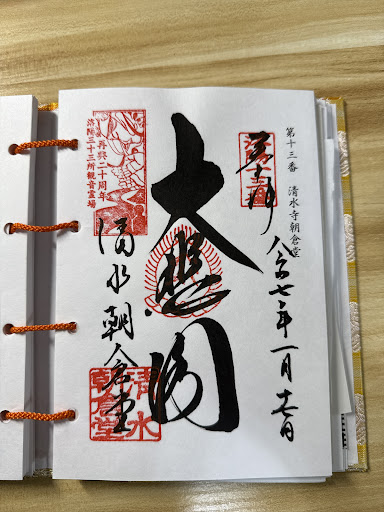 第十三番　清水寺朝倉堂
奉拝
令和七年一月十七日
大悲閣
再興二十周年
洛陽三十三所観音霊場
清水朝倉堂
清水
朝倉堂